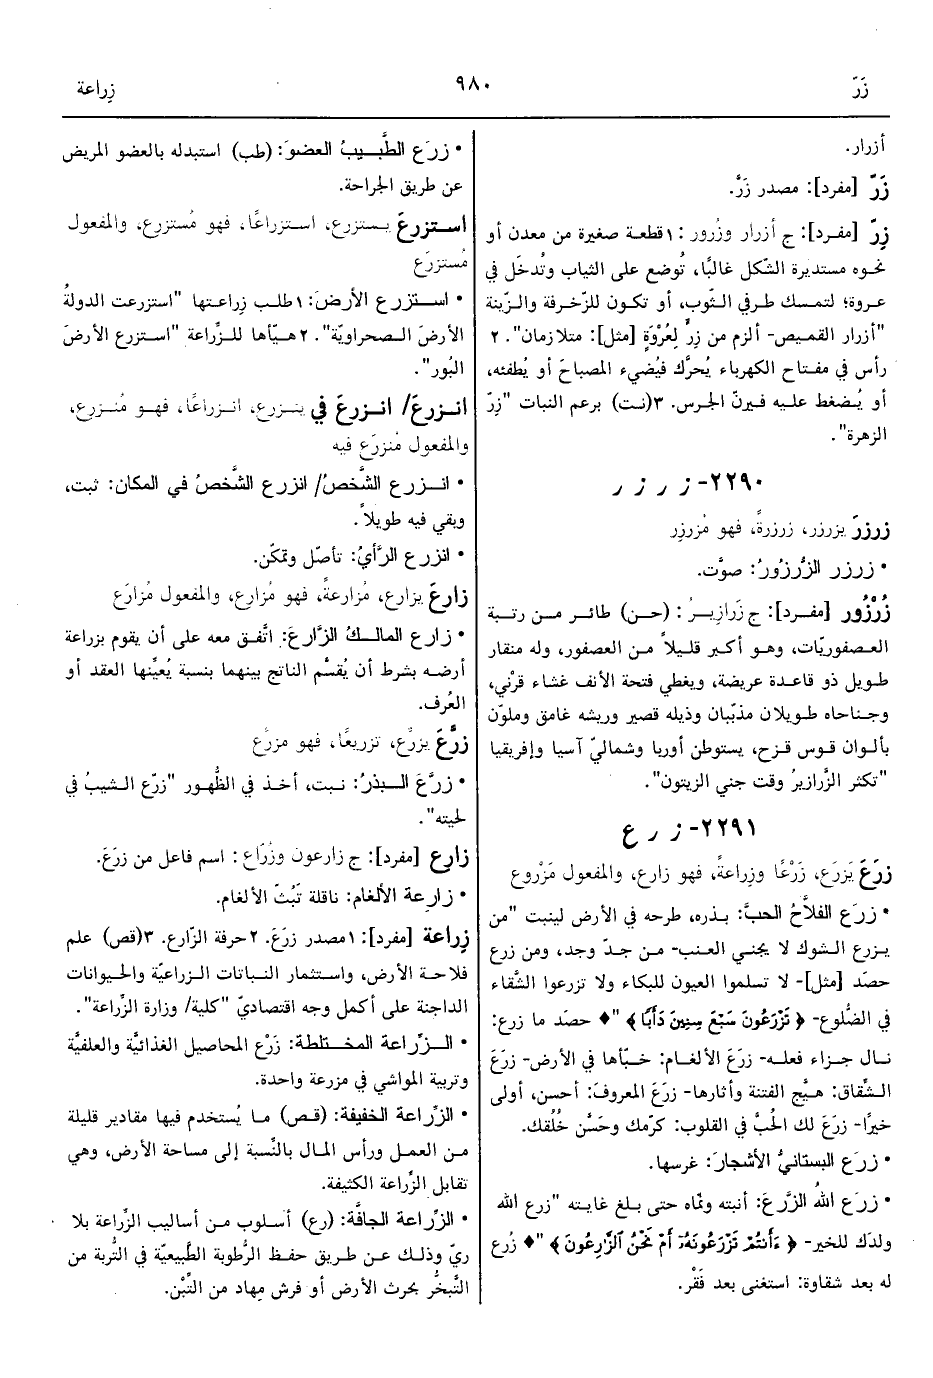 زَرّ
٩٨٠
زِراعة
أزرار.
زَرّ [مفرد]: مصدر زَرَّ.
زِرّ [مفرد]: ج أزرار وزُرور: ١ قطعة صغيرة من معدن أو
نحوه مستديرة الشّكل غالبًا، تُوضع على الثياب وتُدخَل في
عروة؛ لتمسك طرفي الثّوب، أو تكون للزّخرفة والزّينة
"أزرار القميص- ألزم من زِرٍّ لِعُرْوَةٍ [مثل]: متلازمان". ٢
رأس في مفتاح الكهرباء يُحرَّك فيُضيء المصباحَ أو يُطفئه،
أو يُضغط عليه فيرنّ الجرس. ٣(نت) برعم النبات "زِرّ
الزهرة".
٢٢٩٠- ز ر ز ر
زرزرَ يزرزر، زرزرةً، فهو مُزرزِر
• زرزر الزُّرزُورُ: صوَّت.
زُرْزُور [مفرد]: ج زَرازيرُ: (حن) طائر من رتبة
العصفوريّات، وهو أكبر قليلاً من العصفور، وله منقار
طويل ذو قاعدة عريضة، ويغطي فتحة الأنف غشاء قرْني،
وجناحاه طويلان مذبّبان وذيله قصير وريشه غامق وملوّن
بألوان قوس قزح، يستوطن أوربا وشماليّ آسيا وإفريقيا
"تكثر الزَّرازيرُ وقت جني الزيتون".
٢٢٩١- ز ر ع
زرَعَ يَزرَع، زَرْعًا وزِراعةً، فهو زارع، والمفعول مَزْروع
• زرَع الفلاَّحُ الحبَّ: بذره، طرحه في الأرض لينبت "من
يزرع الشوك لا يجني العنب- من جدّ وجد، ومن زرع
حصَد [مثل]- لا تسلموا العيون للبكاء ولا تزرعوا الشَّقاء
في الضُّلوع- ﴿ تَزْرَعُونَ سَبْعَ سِنِينَ دَأَبًا ﴾ "♦ حصَد ما زرع:
نال جزاء فعله- زرَعَ الألغام: خبّأها في الأرض- زرَعَ
الشّقاق: هيّج الفتنة وأثارها- زرَعَ المعروفَ: أحسن، أولى
خيرًا- زرَعَ لك الحُبَّ في القلوب: كرّمك وحَسَّن خُلُقك.
• زرَع البستانيُّ الأشجارَ: غرسها.
• زرَع اللهُ الزَّرعَ: أنبته ونمّاه حتى بلغ غايته "زرع الله
ولدك للخير- ﴿ ءَأَنتُمْ تَزْرَعُونَهُۥٓ أَمْ نَحْنُ ٱلزَّٰرِعُونَ ﴾ "♦ زُرع
له بعد شقاوة: استغنى بعد فَقْر.
• زرَع الطَّبيبُ العضوَ: (طب) استبدله بالعضو المريض
عن طريق الجراحة.
استزرعَ يستزرع، استزراعًا، فهو مُستزرِع، والمفعول
مُستزرَع
• استزرع الأرضَ: ١ طلب زِراعتها "استزرعت الدولةُ
الأرضَ الصحراويّة". ٢ هيّأها للزّراعة "استزرع الأرضَ
البُور".
انزرعَ/ انزرعَ في ينزرع، انزراعًا، فهو مُنزرِع،
والمفعول مُنزرَع فيه
• انزرع الشَّخصُ/ انزرع الشَّخصُ في المكان: ثبت،
وبقي فيه طويلاً.
• انزرع الرَّأيُ: تأصّل وتمكّن.
زارعَ يزارع، مُزارعةً، فهو مُزارِع، والمفعول مُزارَع
• زارع المالكُ الزَّارعَ: اتَّفق معه على أن يقوم بزراعة
أرضه بشرط أن يُقسَّم الناتج بينهما بنسبة يُعيِّنها العقد أو
العُرف.
زرَّعَ يزرِّع، تزريعًا، فهو مزرِّع
• زرَّعَ البذرُ: نبت، أخذ في الظُّهور "زرّع الشيبُ في
لحيته".
زارع [مفرد]: ج زارعون وزُرّاع: اسم فاعل من زرَعَ.
• زارعة الألغام: ناقلة تَبُثّ الألغام.
زِراعة [مفرد]: ١ مصدر زرَعَ. ٢ حرفة الزّارع. ٣(قص) علم
فلاحة الأرض، واستثمار النباتات الزراعيّة والحيوانات
الداجنة على أكمل وجه اقتصاديّ "كلية/ وزارة الزِّراعة".
• الزِّراعة المختلطة: زَرْع المحاصيل الغذائيَّة والعلفيَّة
وتربية المواشي في مزرعة واحدة.
• الزّراعة الخفيفة: (قص) ما يُستخدم فيها مقادير قليلة
من العمل ورأس المال بالنِّسبة إلى مساحة الأرض، وهي
تقابل الزِّراعة الكثيفة.
• الزِّراعة الجافَّة: (رع) أسلوب من أساليب الزِّراعة بلا
ريّ وذلك عن طريق حفظ الرُّطوبة الطَّبيعيّة في التُّربة من
التَّبخُّر بحرث الأرض أو فرش مِهاد من التِّبْن.